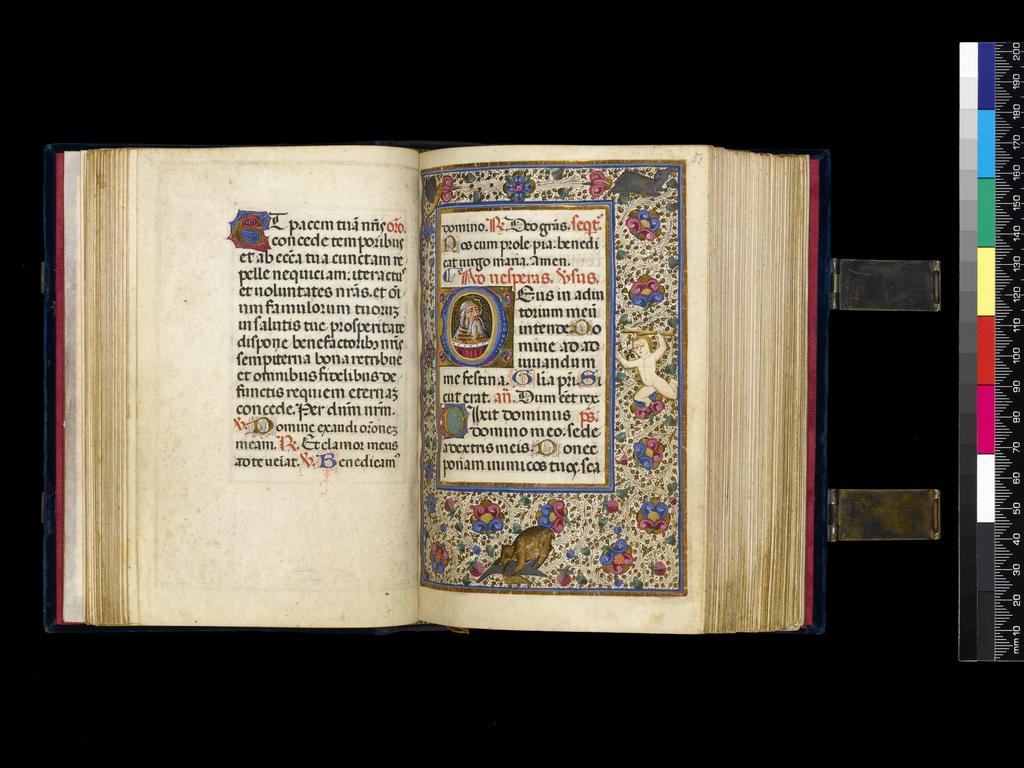 Et pacem tuā nr̄is oro.
concede temporibus
et ab ecc̄a tua cunctam re
pelle nequiciam. iter actus
et voluntates nr̄as. et oī
um famulorum tuorum
in salutis tue prosperitate
dispone benefactoribus nr̄is
sempiterna bona retribue
et omnibus fidelibus de
functis requiem eternam
concede. Per dn̄m nr̄m.
V. Domine exaudi orōnem
meam. R. Et clamor meus
ad te ueīat. V. Benedicam
domino. R. Deo grās. seqt̄.
Nos cum prole pia. benedi
cat uirgo maria. Amen.
Ad uesperas. Vsus.
Deus in adiu
torium meū
intende Do
mine ad ad
iuuandum
me festina. Glia pr̄i. Si
cut erat. an̄. Dum eēt rex
Dixit dominus ps̄.
domino meo. sede
a dextris meis. Donec
ponam inimicos tuos. sca
51
mm 10 20 30 40 50 60 70 80 90 100 110 120 130 140 150 160 170 180 190 200